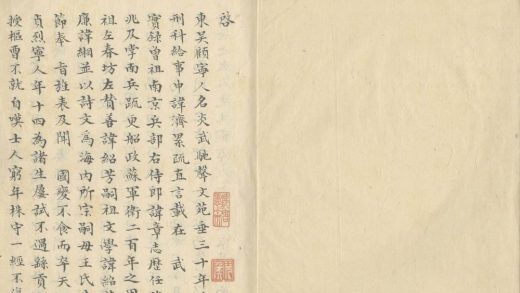 啓
東吳顧寧人名炎武馳聲文苑垂三十年
刑科給事中諱濟累疏直言載在 武
實錄曾祖南京兵部右侍郎諱章志歷任
兆及掌南兵疏更船政蘇軍衛二百年之
祖左春坊左贊善諱紹芳嗣祖文學諱紹
廉諱緗並以詩文為海內所宗嗣母王氏
節奉 旨旌表及聞 國變不食而卒天
貞烈寧人年十四為諸生屢試不遇繇貢
授樞曹不就自嘆士人窮年株守一經不